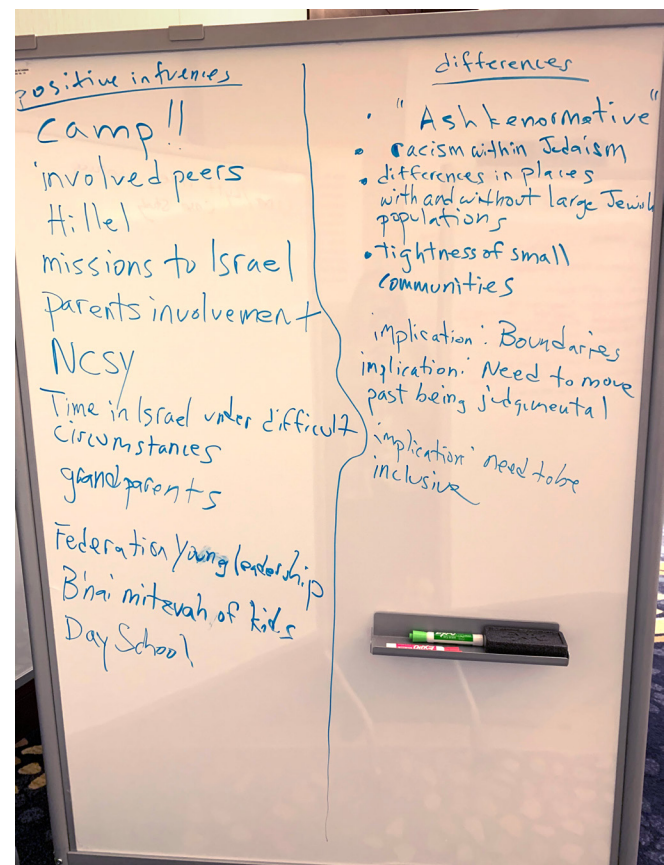 positive infuences
Camp!!
involved peers
Hillel
missions to Israel
parents involvement
NCSY
Time in Israel under difficult
circumstances
grandparents
Federation Young leadership
B'nai mitzvah of kids
Day School
differences
• "Ashkenormative"
• racism within Judaism
• differences in places
with and without large Jewish
populations
• tightness of small
communities
implication: Boundaries
implication: Need to move
past being judgmental
implication: need to be
inclusive
EXPO